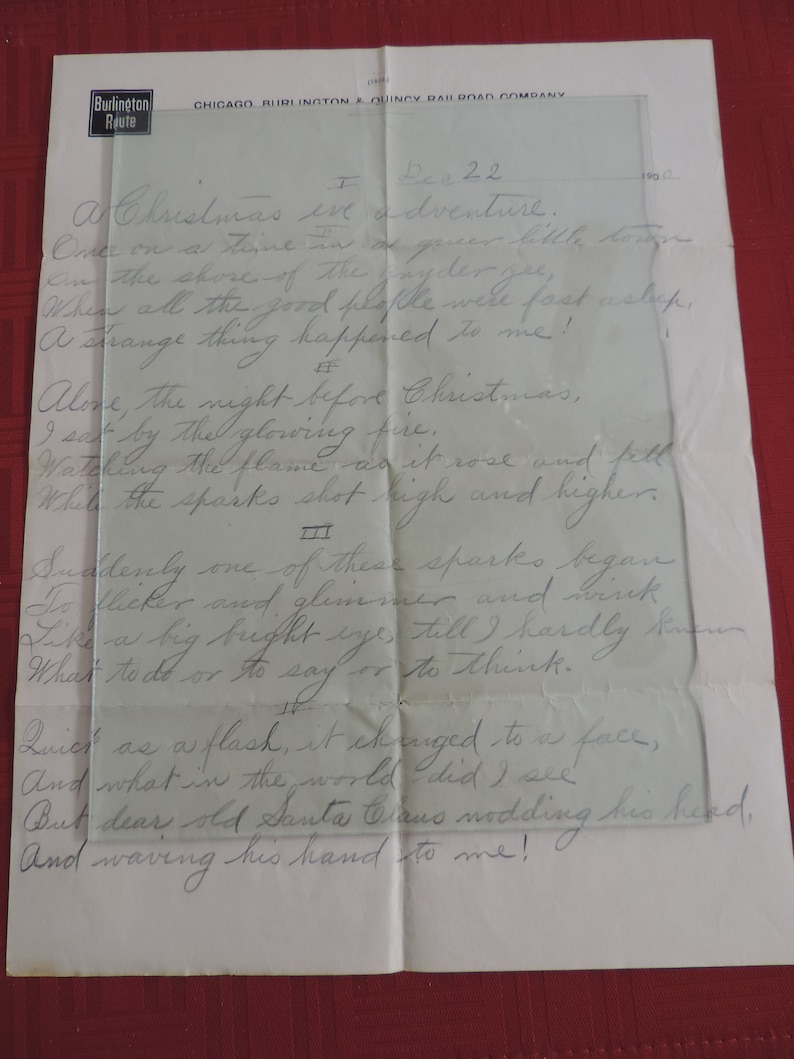 Burlington
Route
CHICAGO, BURLINGTON & QUINCY RAILROAD COMPANY
I
Dec 22
190
A Christmas eve adventure.
Once on a time in a queer little town
On the shore of the
When all the good people were fast asleep,
A strange thing happened to me!
II
Alone, the night before Christmas,
I sat by the glowing fire.
Watching the flame as it rose and fell
While the sparks shot high and higher.
III
Suddenly one of these sparks began
To flicker and glimmer and wink
Like a big bright eye, till I hardly knew
What to do or to say or to think.
IV
Quick as a flash, it changed to a face,
And what in the world did I see
But dear old Santa Claus nodding his head,
And waving his hand to me!